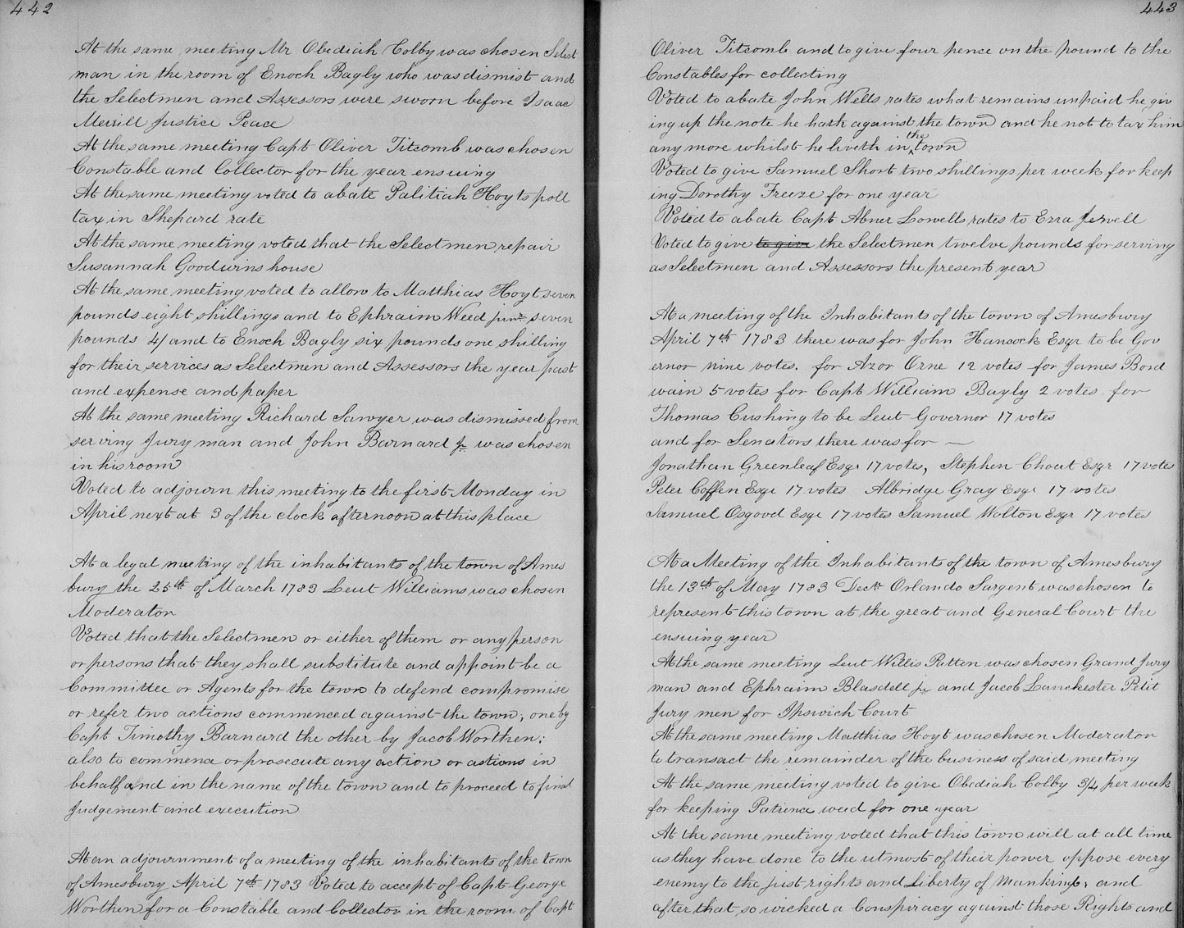 442
At the same meeting Mr Obediah Colby was chosen Select
man in the room of Enoch Bagly who was dismist and
the Selectmen and Assessors were sworn before Isaac
Merrill Justice Peace
At the same meeting Capt Oliver Titcomb was chosen
Constable and Collector for the year ensuing
At the same meeting voted to abate Palitiah Hoyts poll
tax in Shepard rate
At the same meeting voted that the Selectmen repair
Susannah Goodwins house
At the same meeting voted to allow to Matthias Hoyt seven
pounds eight shillings and to Ephraim Weed junr seven
pounds 4/ and to Enoch Bagly six pounds one shilling
for their services as Selectmen and Assessors the year past
and expense and paper
At the same meeting Richard Sawyer was dismissed from
serving Jury man and John Barnard Jr was chosen
in his room
Voted to adjourn this meeting to the first Monday in
April next at 3 of the clock afternoon at this place
At a legal meeting of the inhabitants of the town of Ames
bury the 25th of March 1783 Leut Williams was chosen
Moderator
Voted that the Selectmen or either of them or any person
or persons that they shall substitute and appoint be a
Committee or Agents for the town to defend compromise
or refer two actions commenced against the town, one by
Capt Timothy Barnard the other by Jacob Worthen;
also to commence or prosecute any action or actions in
behalf and in the name of the town and to proceed to final
Judgement and execution
At an adjournment of a meeting of the inhabitants of the town
of Amesbury April 7th 1783 Voted to accept of Capt George
Worthen for a Constable and Collector in the room of Capt
443
Oliver Titcomb and to give four pence on the pound to the
Constables for collecting
Voted to abate John Wells rates what remains unpaid he giv
ing up the note he hath against the town and he not to tax him
any more whilst he liveth in the town
Voted to give Samuel Short two shillings per week for keep
ing Dorothy Freeze for one year
Voted to abate Capt Abner Lowells rates to Ezra Jewell
Voted to give to give the Selectmen twelve pounds for serving
as Selectmen and Assessors the present year
At a meeting of the Inhabitants of the town of Amesbury
April 7th 1783 there was for John Hancock Esqr to be Gov
ernor nine votes. for Azor Orne 12 votes for James Bord
wain 5 votes for Capt William Bagly 2 votes for
Thomas Cushing to be Leut Governor 17 votes
and for Senators there was for —
Jonathan Greenleaf Esqr 17 votes, Stephen Choat Esqr 17 votes
Peter Coffen Esqr 17 votes Albridge Gray Esqr 17 votes
Samuel Osgood Esqr 17 votes Samuel Molton Esqr 17 votes
At a Meeting of the Inhabitants of the town of Amesbury
the 13th of May 1783 Decn Orlando Sargent was chosen to
represent this town at the great and General Court the
ensuing year
At the same meeting Leut Willis Pitten was chosen Grand Jury
man and Ephraim Blasdell jr and Jacob Lanchester Petit
Jury men for Ipswich Court
At the same meeting Matthias Hoyt was chosen Moderator
to transact the remainder of the business of said meeting
At the same meeting voted to give Obediah Colby 5/4 per week
for keeping Patience weed for one year
At the same meeting voted that this town will at all time
as they have done to the utmost of their power oppose every
enemy to the just rights and Liberty of Mankind, and
after that, so wicked a Conspiracy against those Rights and